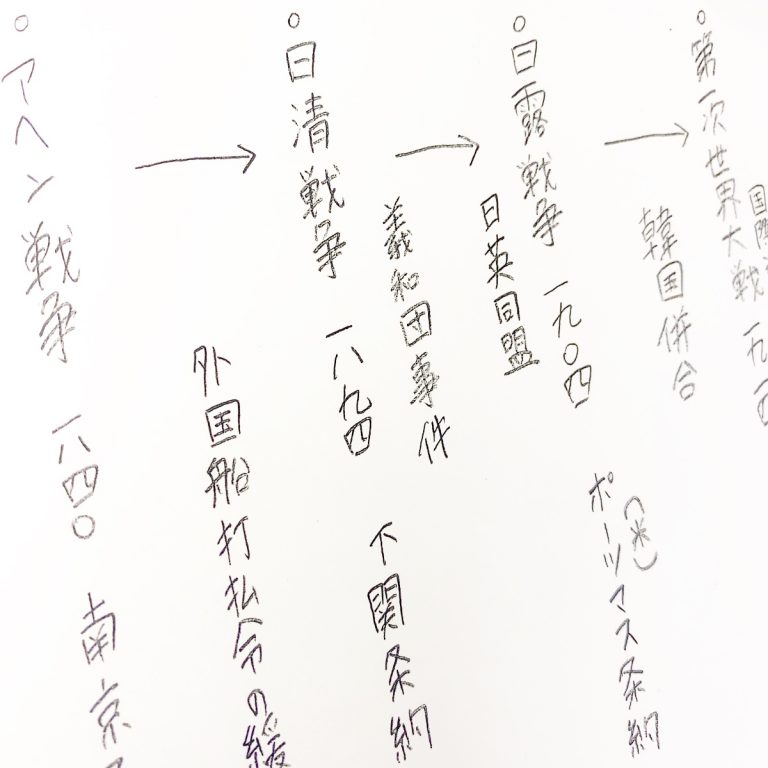 ○アヘン戦争 一八四〇 南京
外国船打払令の緩
○日清戦争 一八九四 下関条約
義和団事件
日英同盟
○日露戦争 一九〇四 ポーツマス条約
(米)
韓国併合
○第一次世界大戦 一九一四
国際